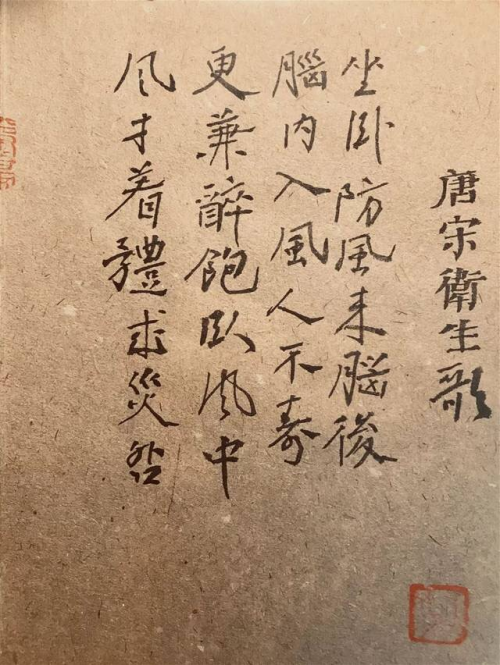 唐宋衛生歌
坐卧防風来腦後
腦内入風人不壽
更兼醉飽卧风中
风才着體成災咎